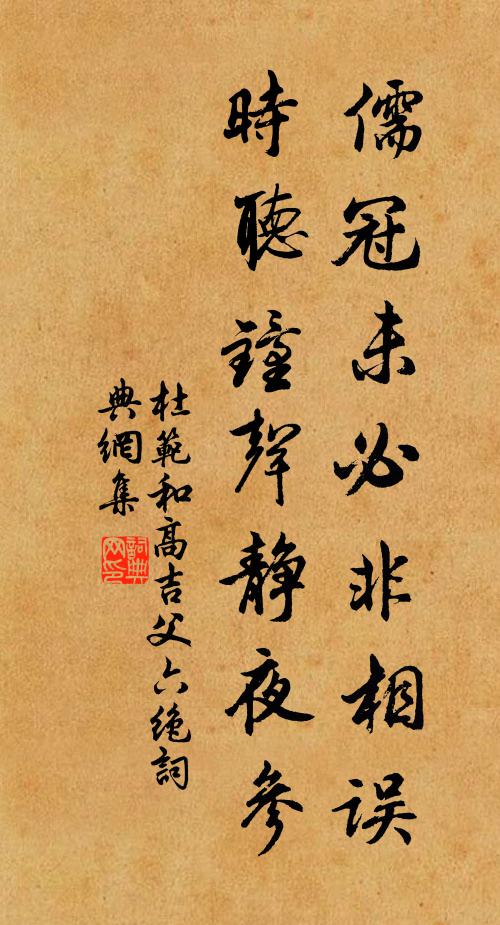 儒冠未必非相误
時聽鐘聲静夜參
杜範和高吉父六绝詞
典網集
詞典
网印